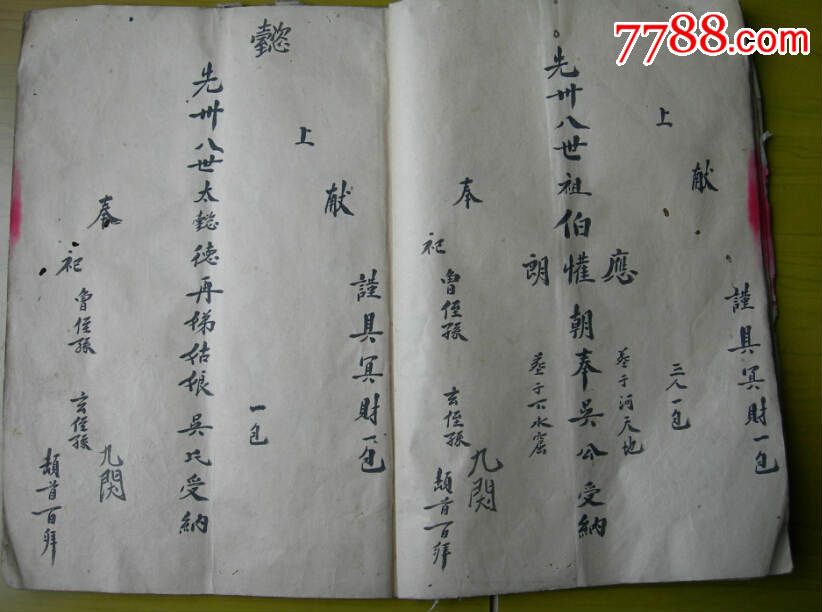 7788.com
謹具冥財一包
献
上
三人一包
塟于河天地
應
先卅八世祖伯惟朝奉吳公受納
朗
塟于下水窟
奉
祀
曾侄孫 玄侄孫
九閃
頓首百拜
謹具冥財一包
献
上
懿
一包
先卅八世太懿德再娣姑娘吳氏受納
奉
祀
曾侄孫 玄侄孫
九閃
頓首百拜